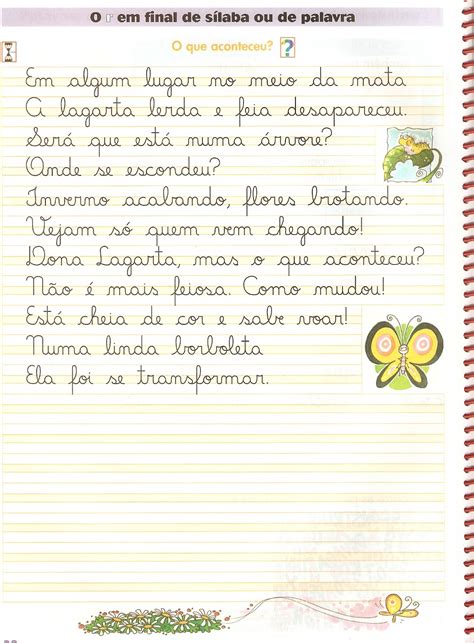 O r em final de sílaba ou de palavra
O que aconteceu? ?
Em algum lugar no meio da mata
A lagarta lerda e feia desapareceu.
Será que está numa árvore?
Onde se escondeu?
Inverno acabando, flores brotando.
Vejam só quem vem chegando!
Dona Lagarta, mas o que aconteceu?
Não é mais feiosa. Como mudou!
Está cheia de cor e sabe voar!
Numa linda borboleta
Ela foi se transformar.